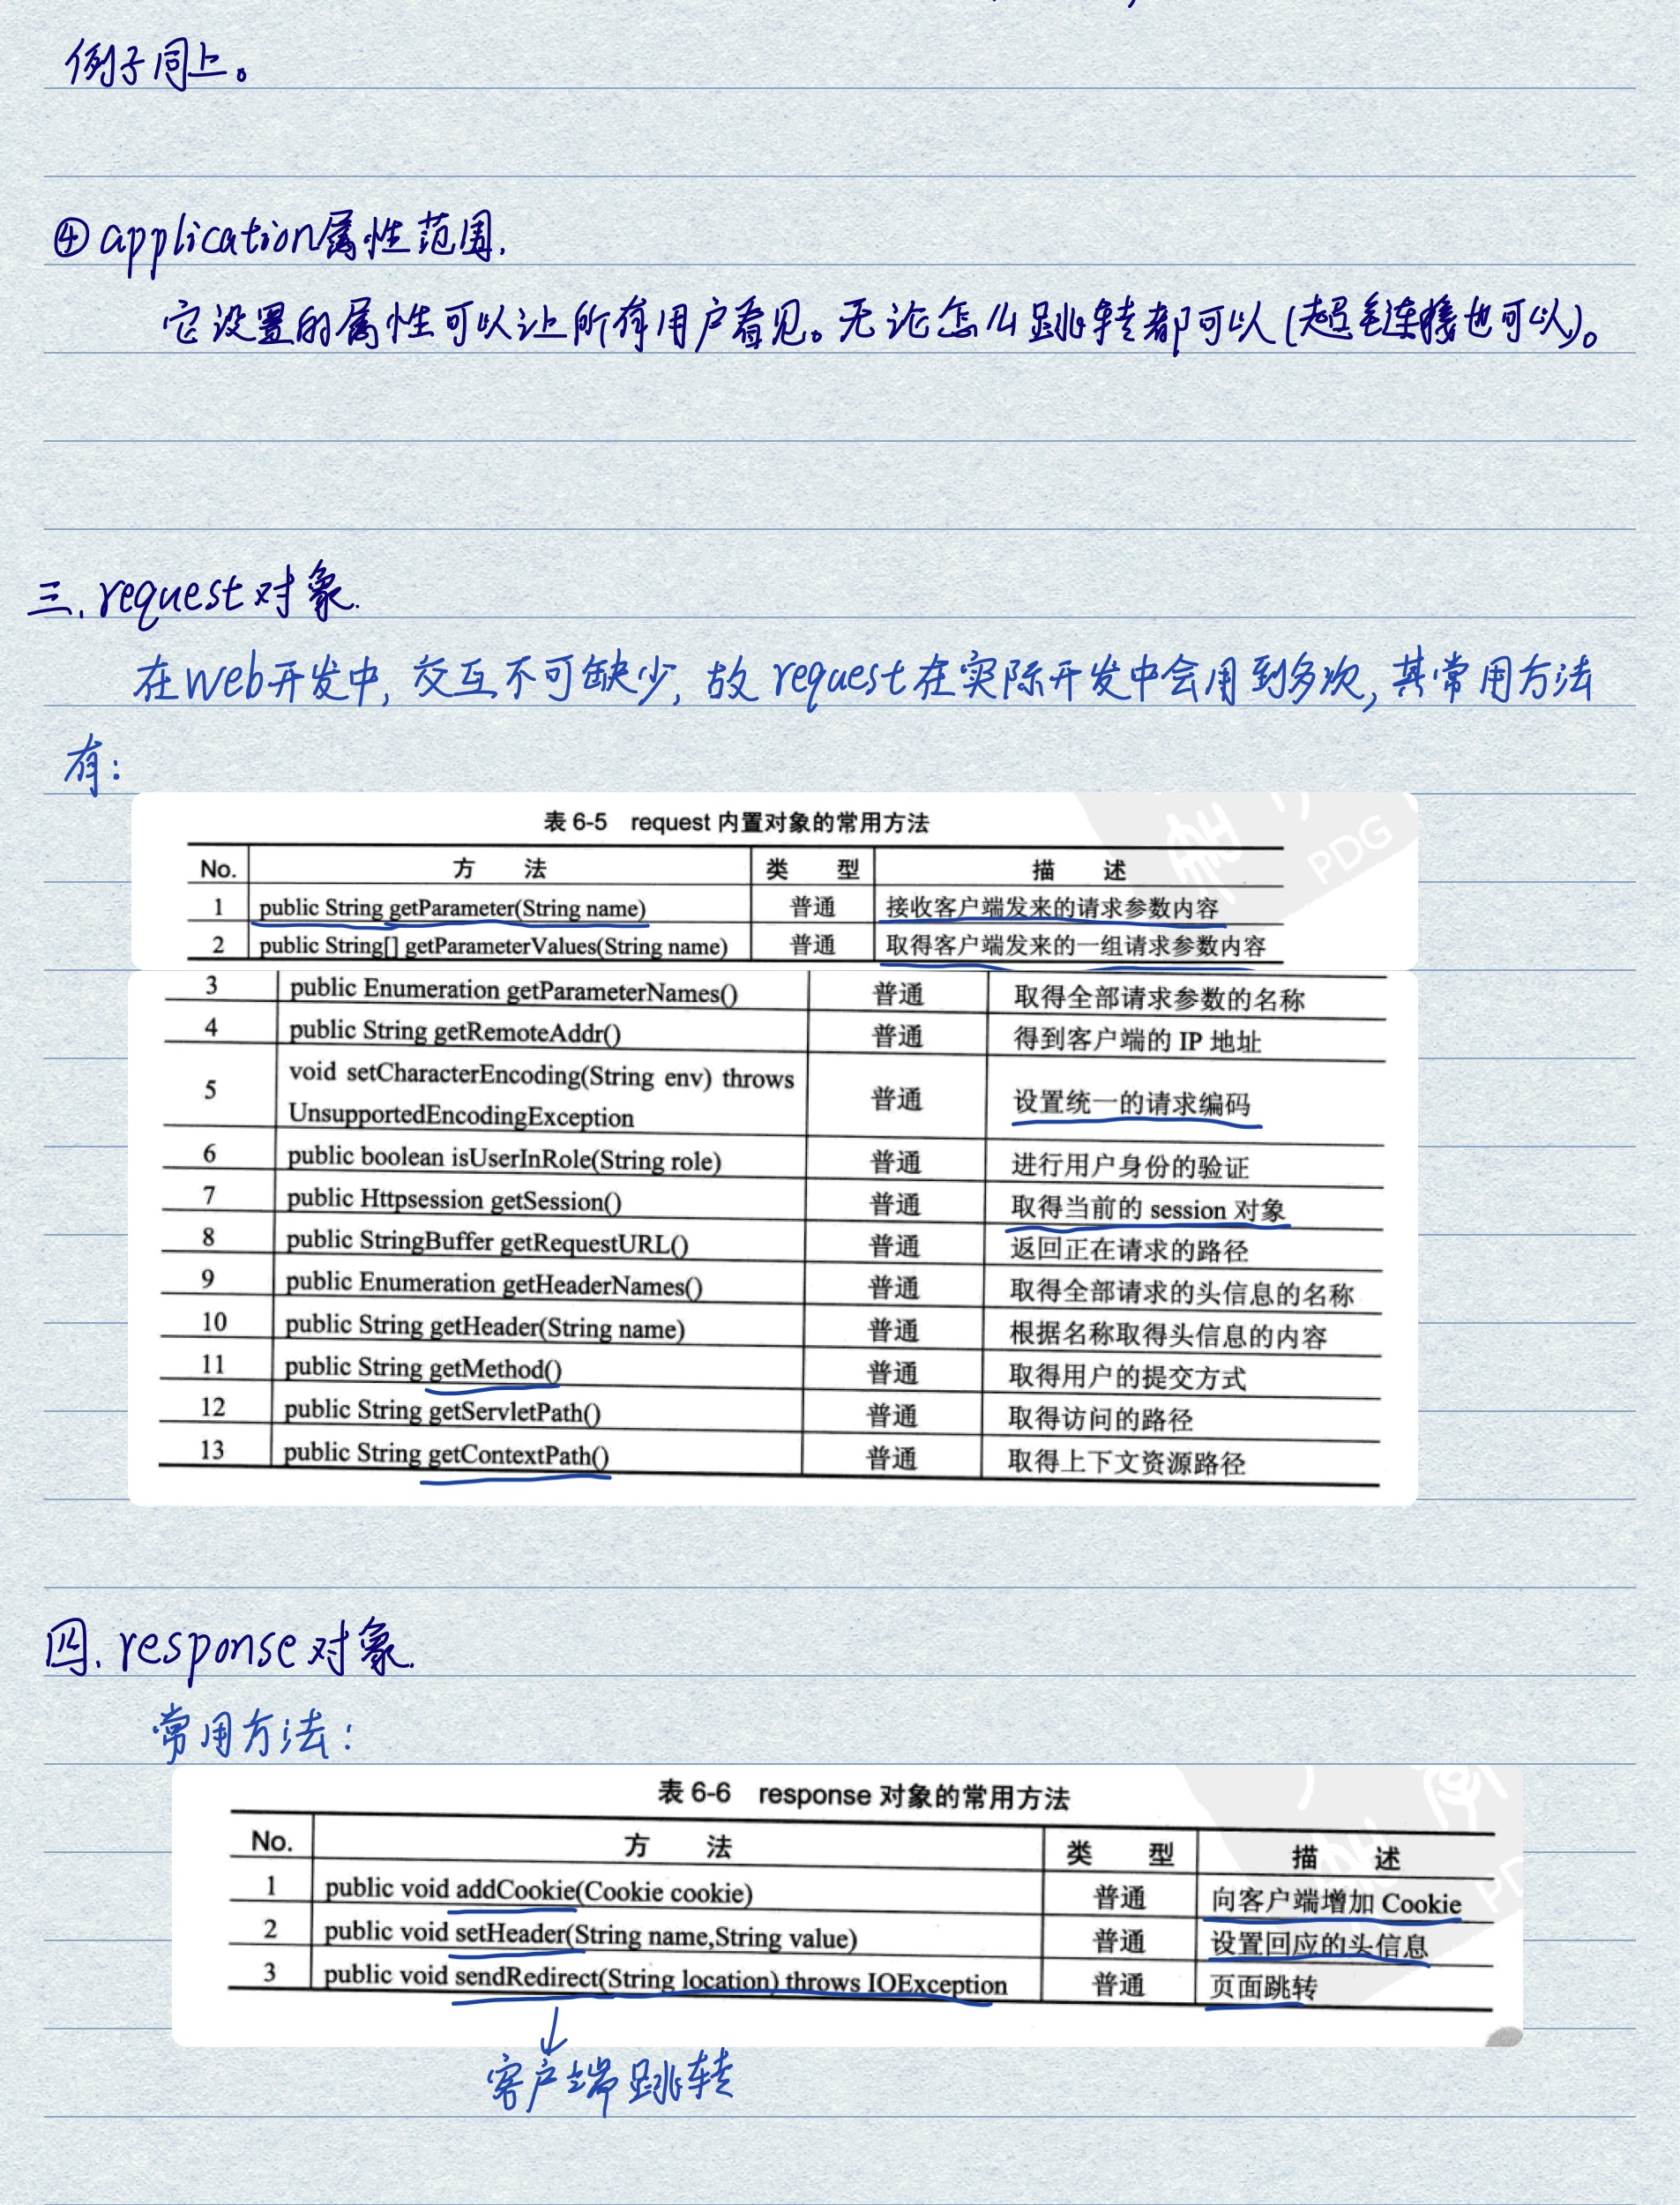 例子同上。
④application属性范围.
它设置的属性可以让所有用户看见。无论怎么跳转都可以(超毛连接也可以)。
三.request对象.
在Web开发中,交互不可缺少,故request在实际开发中会用到多次,其常用方法
有:
表 6-5 request 内置对象的常用方法
No. 方 法 类 型 描 述
1 public String getParameter(String name) 普通 接收客户端发来的请求参数内容
2 public String[] getParameterValues(String name) 普通 取得客户端发来的一组请求参数内容
3 public Enumeration getParameterNames() 普通 取得全部请求参数的名称
4 public String getRemoteAddr() 普通 得到客户端的 IP 地址
5 void setCharacterEncoding(String env) throws
UnsupportedEncodingException 普通 设置统一的请求编码
6 public boolean isUserInRole(String role) 普通 进行用户身份的验证
7 public Httpsession getSession() 普通 取得当前的 session 对象
8 public StringBuffer getRequestURL() 普通 返回正在请求的路径
9 public Enumeration getHeaderNames() 普通 取得全部请求的头信息的名称
10 public String getHeader(String name) 普通 根据名称取得头信息的内容
11 public String getMethod() 普通 取得用户的提交方式
12 public String getServletPath() 普通 取得访问的路径
13 public String getContextPath() 普通 取得上下文资源路径
四.response对象.
常用方法:
表 6-6 response 对象的常用方法
No. 方 法 类 型 描 述
1 public void addCookie(Cookie cookie) 普通 向客户端增加 Cookie
2 public void setHeader(String name,String value) 普通 设置回应的头信息
3 public void sendRedirect(String location) throws IOException 普通 页面跳转
客户端跳转
PDG